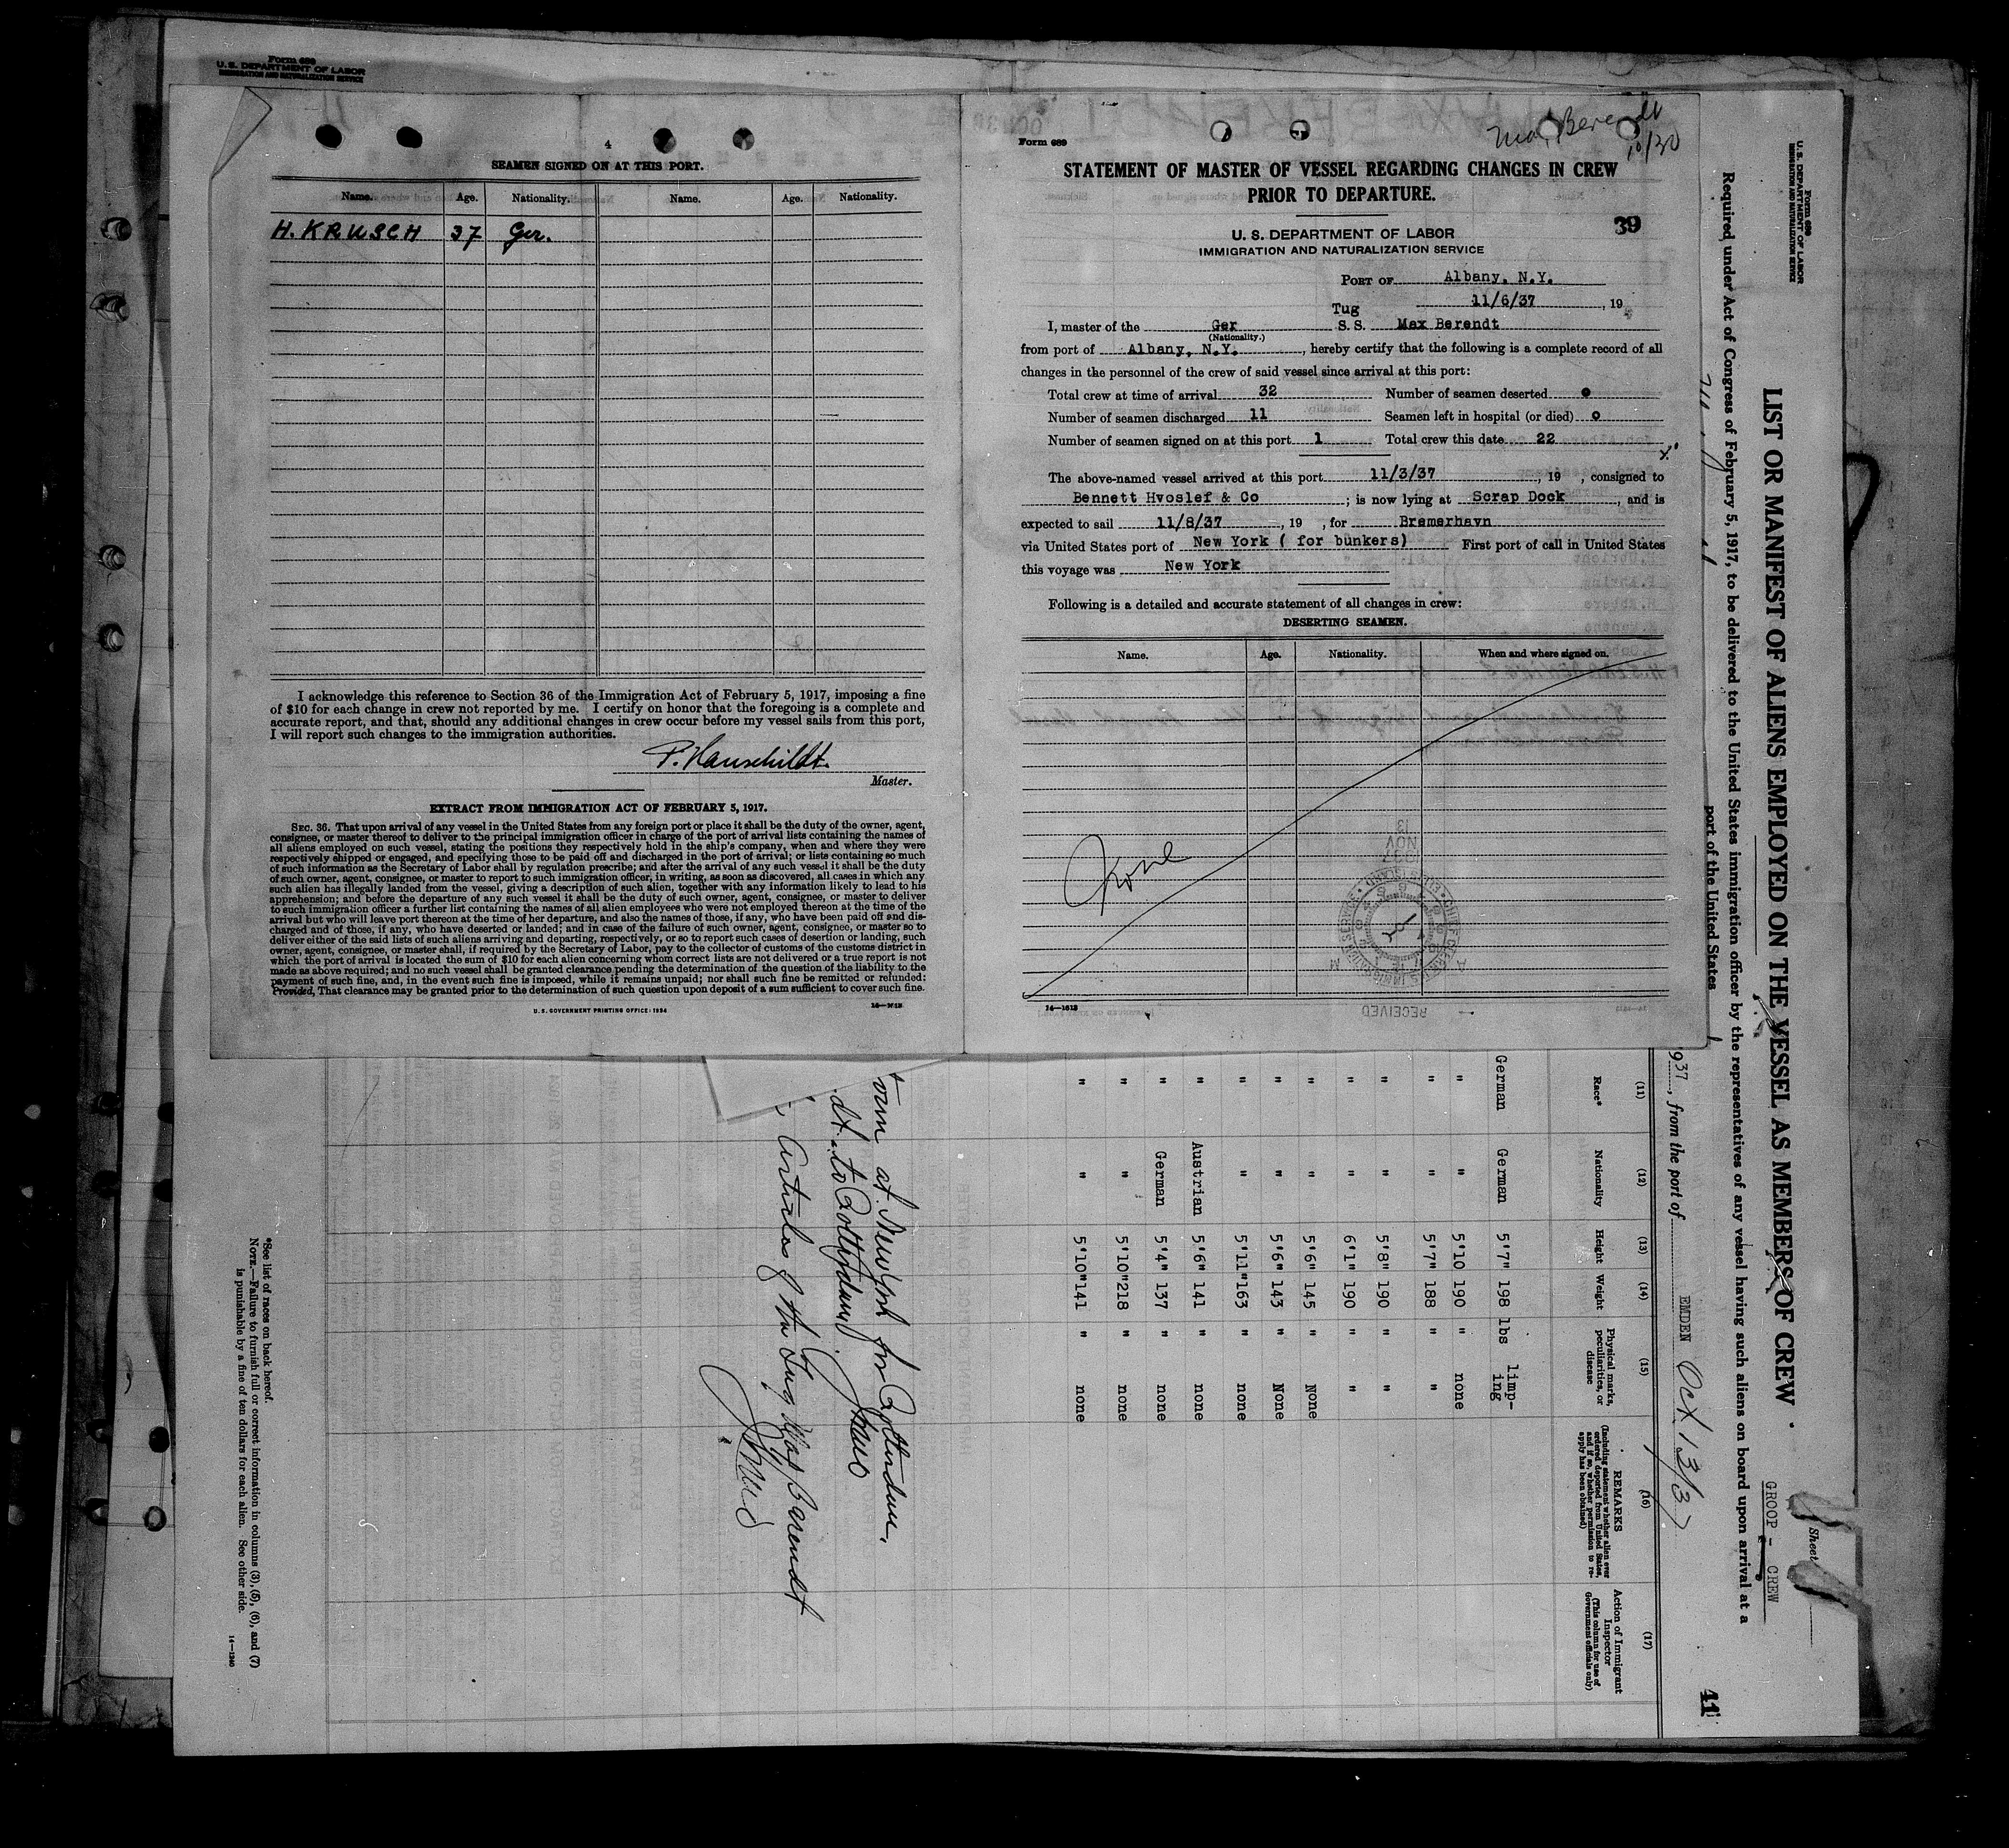 Form 689
U. S. DEPARTMENT OF LABOR
IMMIGRATION AND NATURALIZATION SERVICE
4
SEAMEN SIGNED ON AT THIS PORT.
Name. Age. Nationality. Name. Age. Nationality.
H. KRUSCH 37 Ger.
I acknowledge this reference to Section 36 of the Immigration Act of February 5, 1917, imposing a fine
of $10 for each change in crew not reported by me. I certify on honor that the foregoing is a complete and
accurate report, and that, should any additional changes in crew occur before my vessel sails from this port,
I will report such changes to the immigration authorities.
P. Hauschildt.
Master.
EXTRACT FROM IMMIGRATION ACT OF FEBRUARY 5, 1917.
SEC. 36. That upon arrival of any vessel in the United States from any foreign port or place it shall be the duty of the owner, agent,
consignee, or master thereof to deliver to the principal immigration officer in charge of the port of arrival lists containing the names of
all aliens employed on such vessel, stating the positions they respectively hold in the ship's company, when and where they were
respectively shipped or engaged, and specifying those to be paid off and discharged in the port of arrival; or lists containing so much
of such information as the Secretary of Labor shall by regulation prescribe; and after the arrival of any such vessel it shall be the duty
of such owner, agent, consignee, or master to report to such immigration officer, in writing, as soon as discovered, all cases in which any
such alien has illegally landed from the vessel, giving a description of such alien, together with any information likely to lead to his
apprehension; and before the departure of any such vessel it shall be the duty of such owner, agent, consignee, or master to deliver
to such immigration officer a further list containing the names of all alien employees who were not employed thereon at the time of the
arrival but who will leave port thereon at the time of her departure, and also the names of those, if any, who have been paid off and dis-
charged and of those, if any, who have deserted or landed; and in case of the failure of such owner, agent, consignee, or master so to
deliver either of the said lists of such aliens arriving and departing, respectively, or so to report such cases of desertion or landing, such
owner, agent, consignee, or master shall, if required by the Secretary of Labor, pay to the collector of customs of the customs district in
which the port of arrival is located the sum of $10 for each alien concerning whom correct lists are not delivered or a true report is not
made as above required; and no such vessel shall be granted clearance pending the determination of the question of the liability to the
payment of such fine, and, in the event such fine is imposed, while it remains unpaid; nor shall such fine be remitted or refunded:
Provided, That clearance may be granted prior to the determination of such question upon deposit of a sum sufficient to cover such fine.
U. S. GOVERNMENT PRINTING OFFICE: 1934
Form 689
Max Berendt
10/30
STATEMENT OF MASTER OF VESSEL REGARDING CHANGES IN CREW
PRIOR TO DEPARTURE.
39
U. S. DEPARTMENT OF LABOR
IMMIGRATION AND NATURALIZATION SERVICE
PORT OF Albany, N.Y.
11/6/37, 19
Tug
I, master of the Ger S. S. Max Berendt
(Nationality.)
from port of Albany, N.Y., hereby certify that the following is a complete record of all
changes in the personnel of the crew of said vessel since arrival at this port:
Total crew at time of arrival 32 Number of seamen deserted 0
Number of seamen discharged 11 Seamen left in hospital (or died) 0
Number of seamen signed on at this port 1 Total crew this date 22
The above-named vessel arrived at this port 11/3/37, 19 , consigned to
Bennett Hvoslef & Co ; is now lying at Scrap Dock, and is
expected to sail 11/8/37, 19 , for Bremerhavn
via United States port of New York ( for bunkers) First port of call in United States
this voyage was New York
Following is a detailed and accurate statement of all changes in crew:
DESERTING SEAMEN.
Name. Age. Nationality. When and where signed on.
None
1937
NOV
13
RECEIVED
14—1613
Form 689
U. S. DEPARTMENT OF LABOR
IMMIGRATION AND NATURALIZATION SERVICE
Sheet
LIST OR MANIFEST OF ALIENS EMPLOYED ON THE VESSEL AS MEMBERS OF CREW
GROOP - CREW
Required under Act of Congress of February 5, 1917, to be delivered to the United States immigration officer by the representatives of any vessel having such aliens on board upon arrival at a
port of the United States
41
937, from the port of EMDEN Oct 13/37
(11) (12) (13) (14) (15) (16) (17)
Race* Nationality Height Weight Physical marks, peculiarities, or disease REMARKS (Including statement whether alien ever ordered deported from United States, and if so, whether permission to re-apply has been obtained) Action of Immigrant Inspector (This column for use of Government officials only)
German German 5'7" 198 lbs limp-ing
" " 5'10 190 " none
" " 5'7" 188 " "
" " 5'8" 190 " "
" " 6'1" 190 " "
" " 5'6" 145 " None
" " 5'6" 143 " None
" " 5'11" 163 " none
" Austrian 5'6" 141 " none
" German 5'4" 137 " none
" " 5'10" 218 " none
" " 5'10" 141 " none
at New York for Rotterdam,
dt. to Rotterdam
Articles of the Tug Max Barendt
*See list of races on back hereof.
NOTE.—Failure to furnish full or correct information in columns (3), (5), (6), and (7)
is punishable by a fine of ten dollars for each alien. See other side.
14—1240